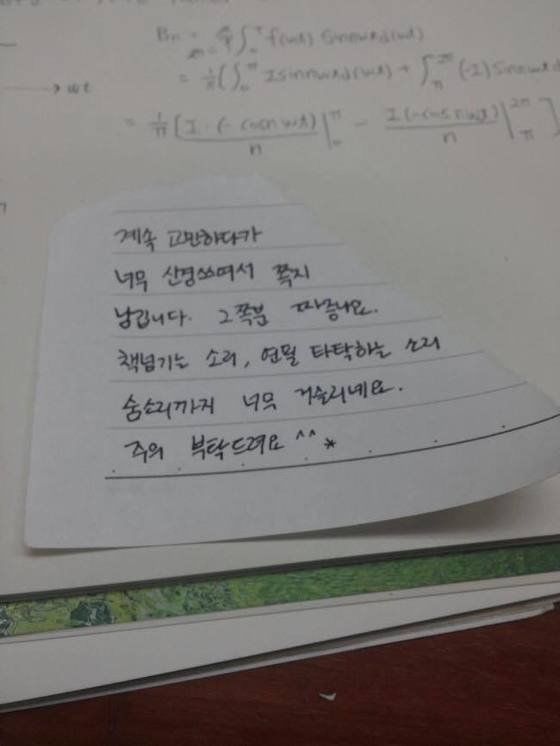 Bn = f(wt) sin nwt d(wt)
= 1/π (∫₀^π I sin nwt d(wt) + ∫_π^2π (-I) sin nwt d
→ wt
= 1/π [ I·(-cos nwt)/n |₀^π - I(-cos nwt)/n |_π^2π ]
계속 고민하다가
너무 신경쓰여서 쪽지
남깁니다. 그쪽분 짜증나요.
책넘기는 소리, 연필 타탁하는 소리
숨소리까지 너무 거슬리네요.
주의 부탁드려요 ^^*